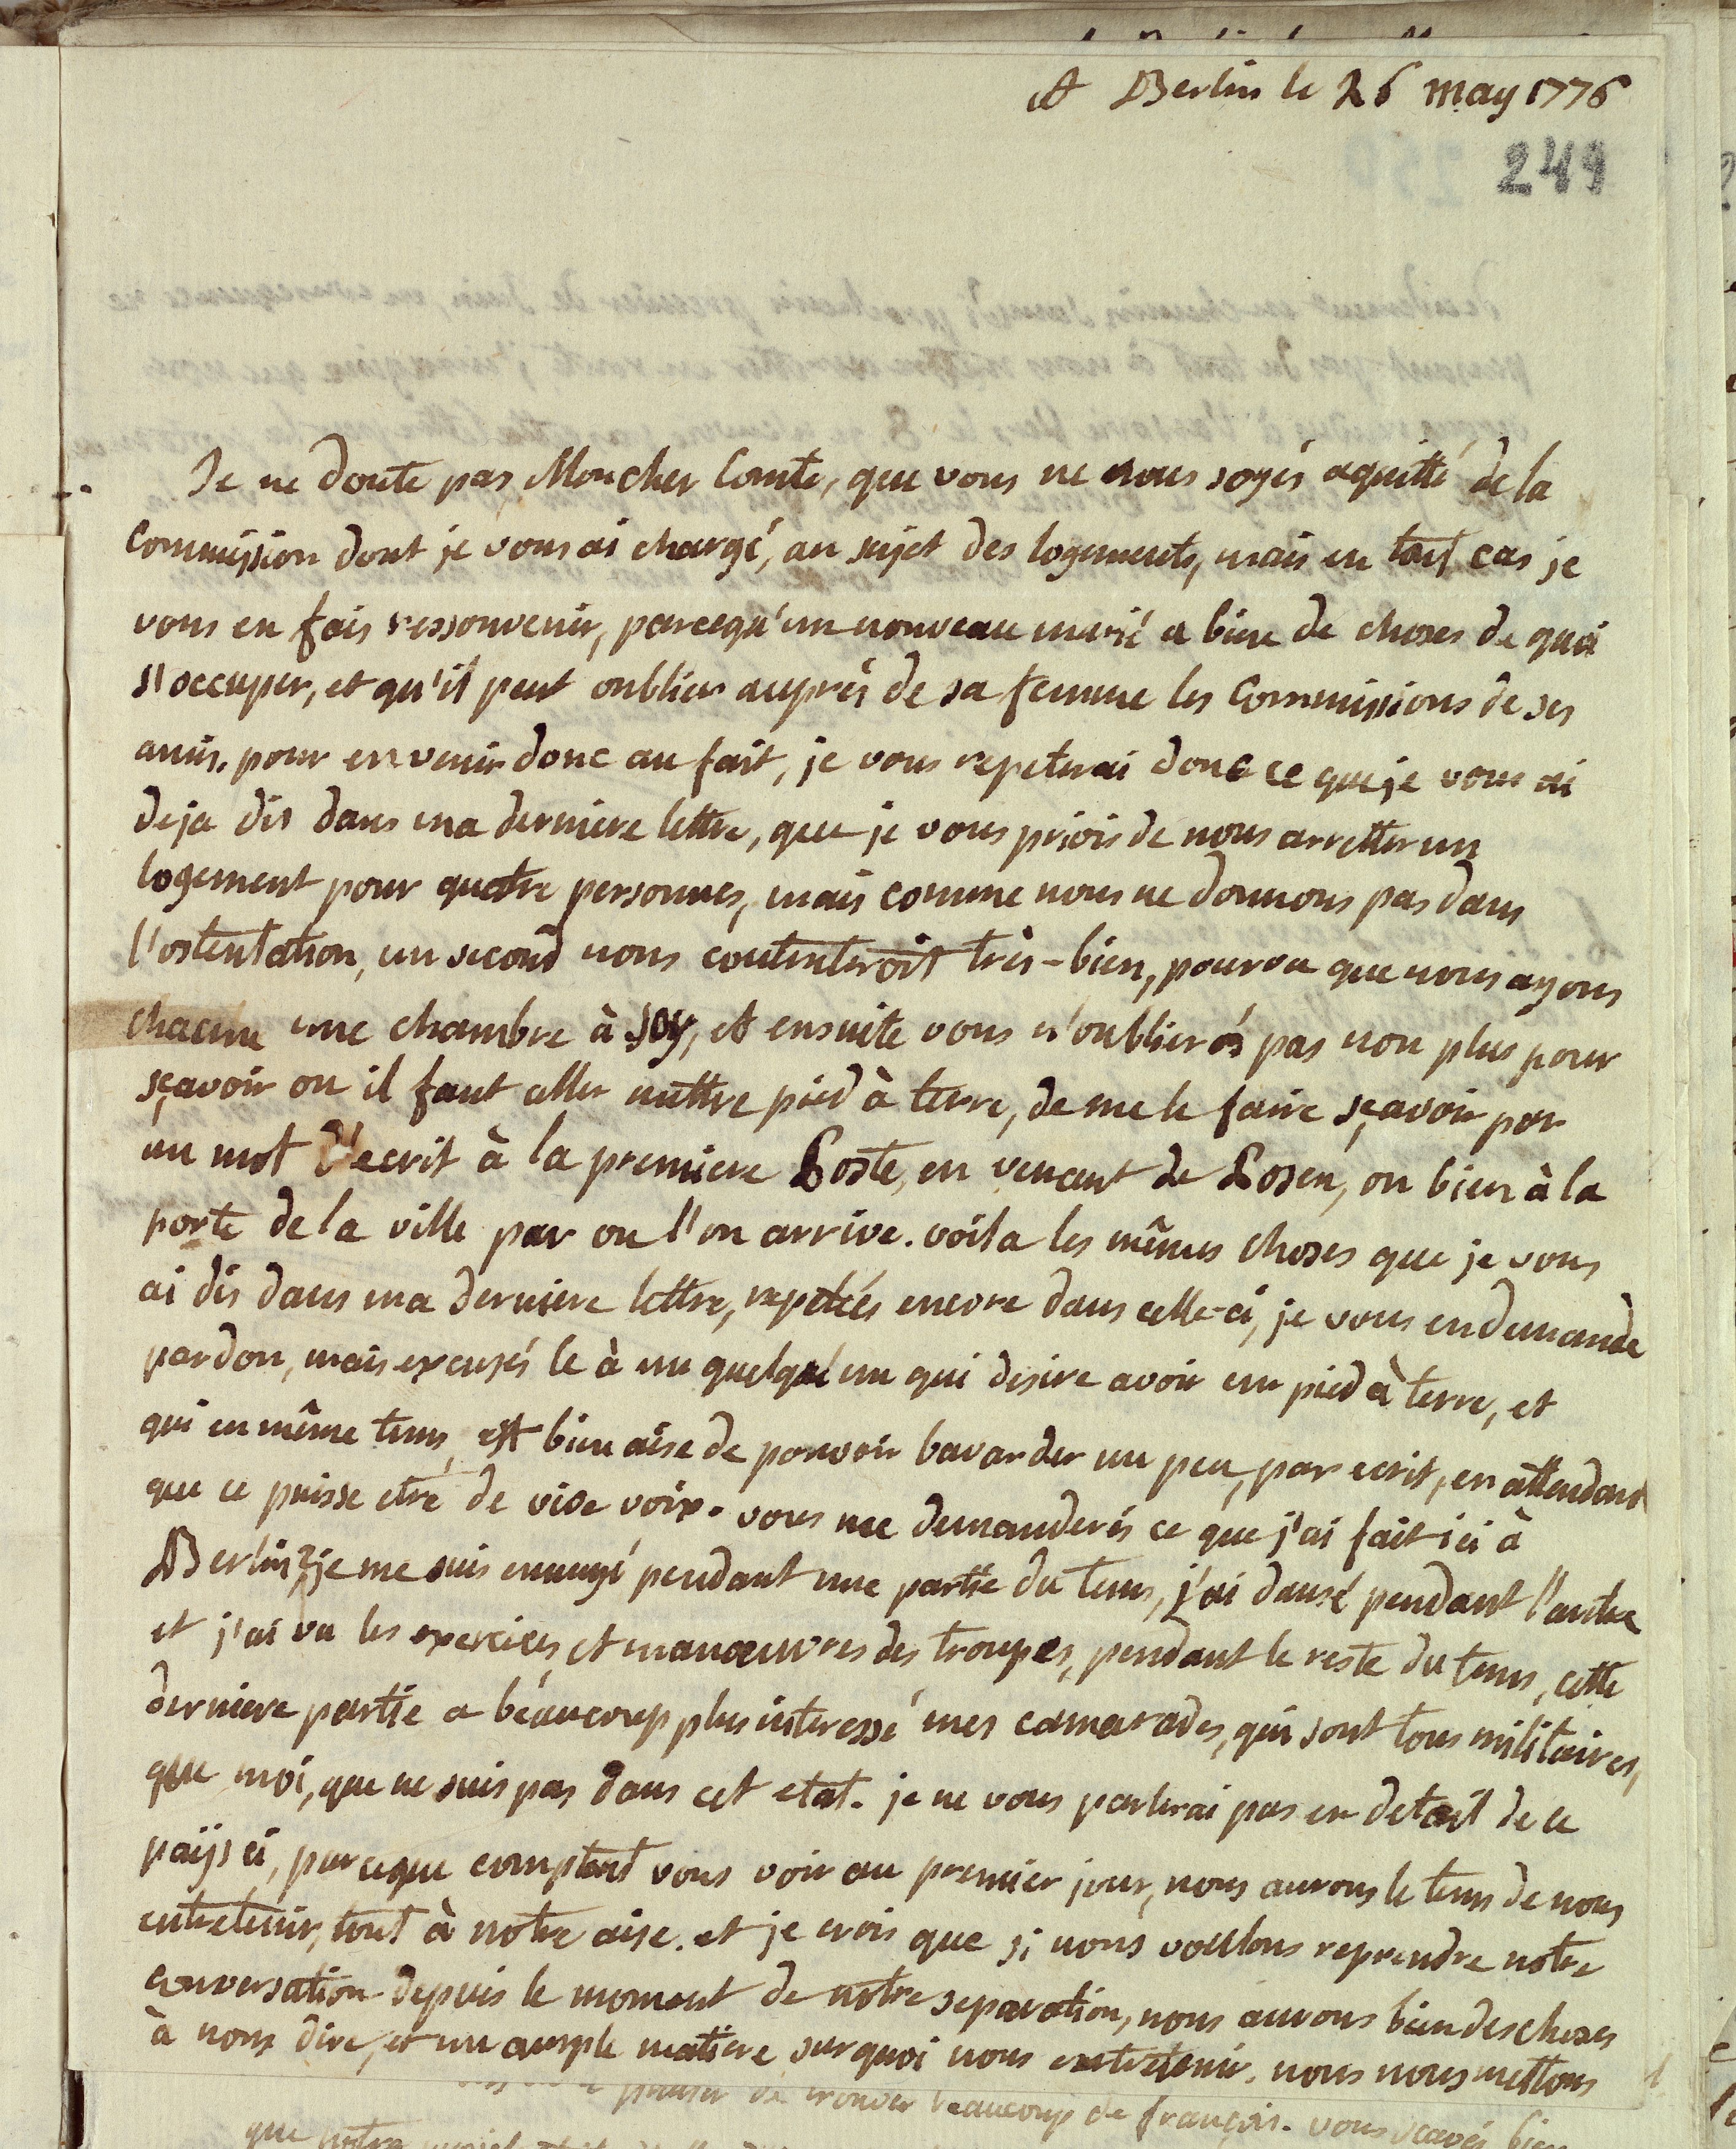 A Berlin le 26 may 1776
249
Je ne doute pas Mon cher Comte, que vous ne vous soyés aquitté de la
Commission dont je vous ai chargé, au sujet des logements, mais en tout cas je
vous en fais ressouvenir, parcequ'un nouveau marié a bien de choses de quoi
s'occuper, et qu'il peut oublier auprés de sa femme les Commissions de ses
amis. pour en venir donc au fait, je vous repeterai donc ce que je vous ai
deja dis dans ma derniere lettre, que je vous priois de nous arretter un
logement pour quatre personnes, mais comme nous ne donnons pas dans
l'ostentation, un second nous contenteroit très-bien, pourvu que nous ayons
chacun une chambre à soy, et ensuite vous n'oublierés pas non plus pour
sçavoir ou il faut aller mettre pied à terre, de me le faire sçavoir par
un mot d'ecrit à la premiere Poste, en venant de Posen, ou bien à la
porte de la ville par ou l'on arrive. voila les mêmes choses que je vous
ai dis dans ma derniere lettre, repetées encore dans celle-ci, je vous en demande
pardon, mais excusés le à un quelqu'un qui desire avoir un pied à terre, et
qui en même tems, est bien aise de pouvoir bavarder un peu, par ecrit, en attendant
que ce puisse etre de vive voix. vous me demanderés ce que j'ai fait ici à
Berlin? je me suis ennuyé pendant une partie du tems, j'ai dansé pendant l'autre
et j'ai vu les exercices, et manœuvres des troupes, pendant le reste du tems, cette
derniere partie a beaucoup plus interessé mes camarades, qui sont tous militaires,
que moi, que ne suis pas dans cet etat. je ne vous parlerai pas en detail de ce
païys ci, parceque comptant vous voir au premier jour, nous aurons le tems de nous
entretenir, tout à notre aise. et je crois que si nous voulons reprendre notre
conversation depuis le moment de notre separation, nous aurons bien des choses
à nous dire, et un ample matiere sur quoi nous entretenir. nous nous mettons
de trouver beaucoup de françois. vous sçavés bien
que notre